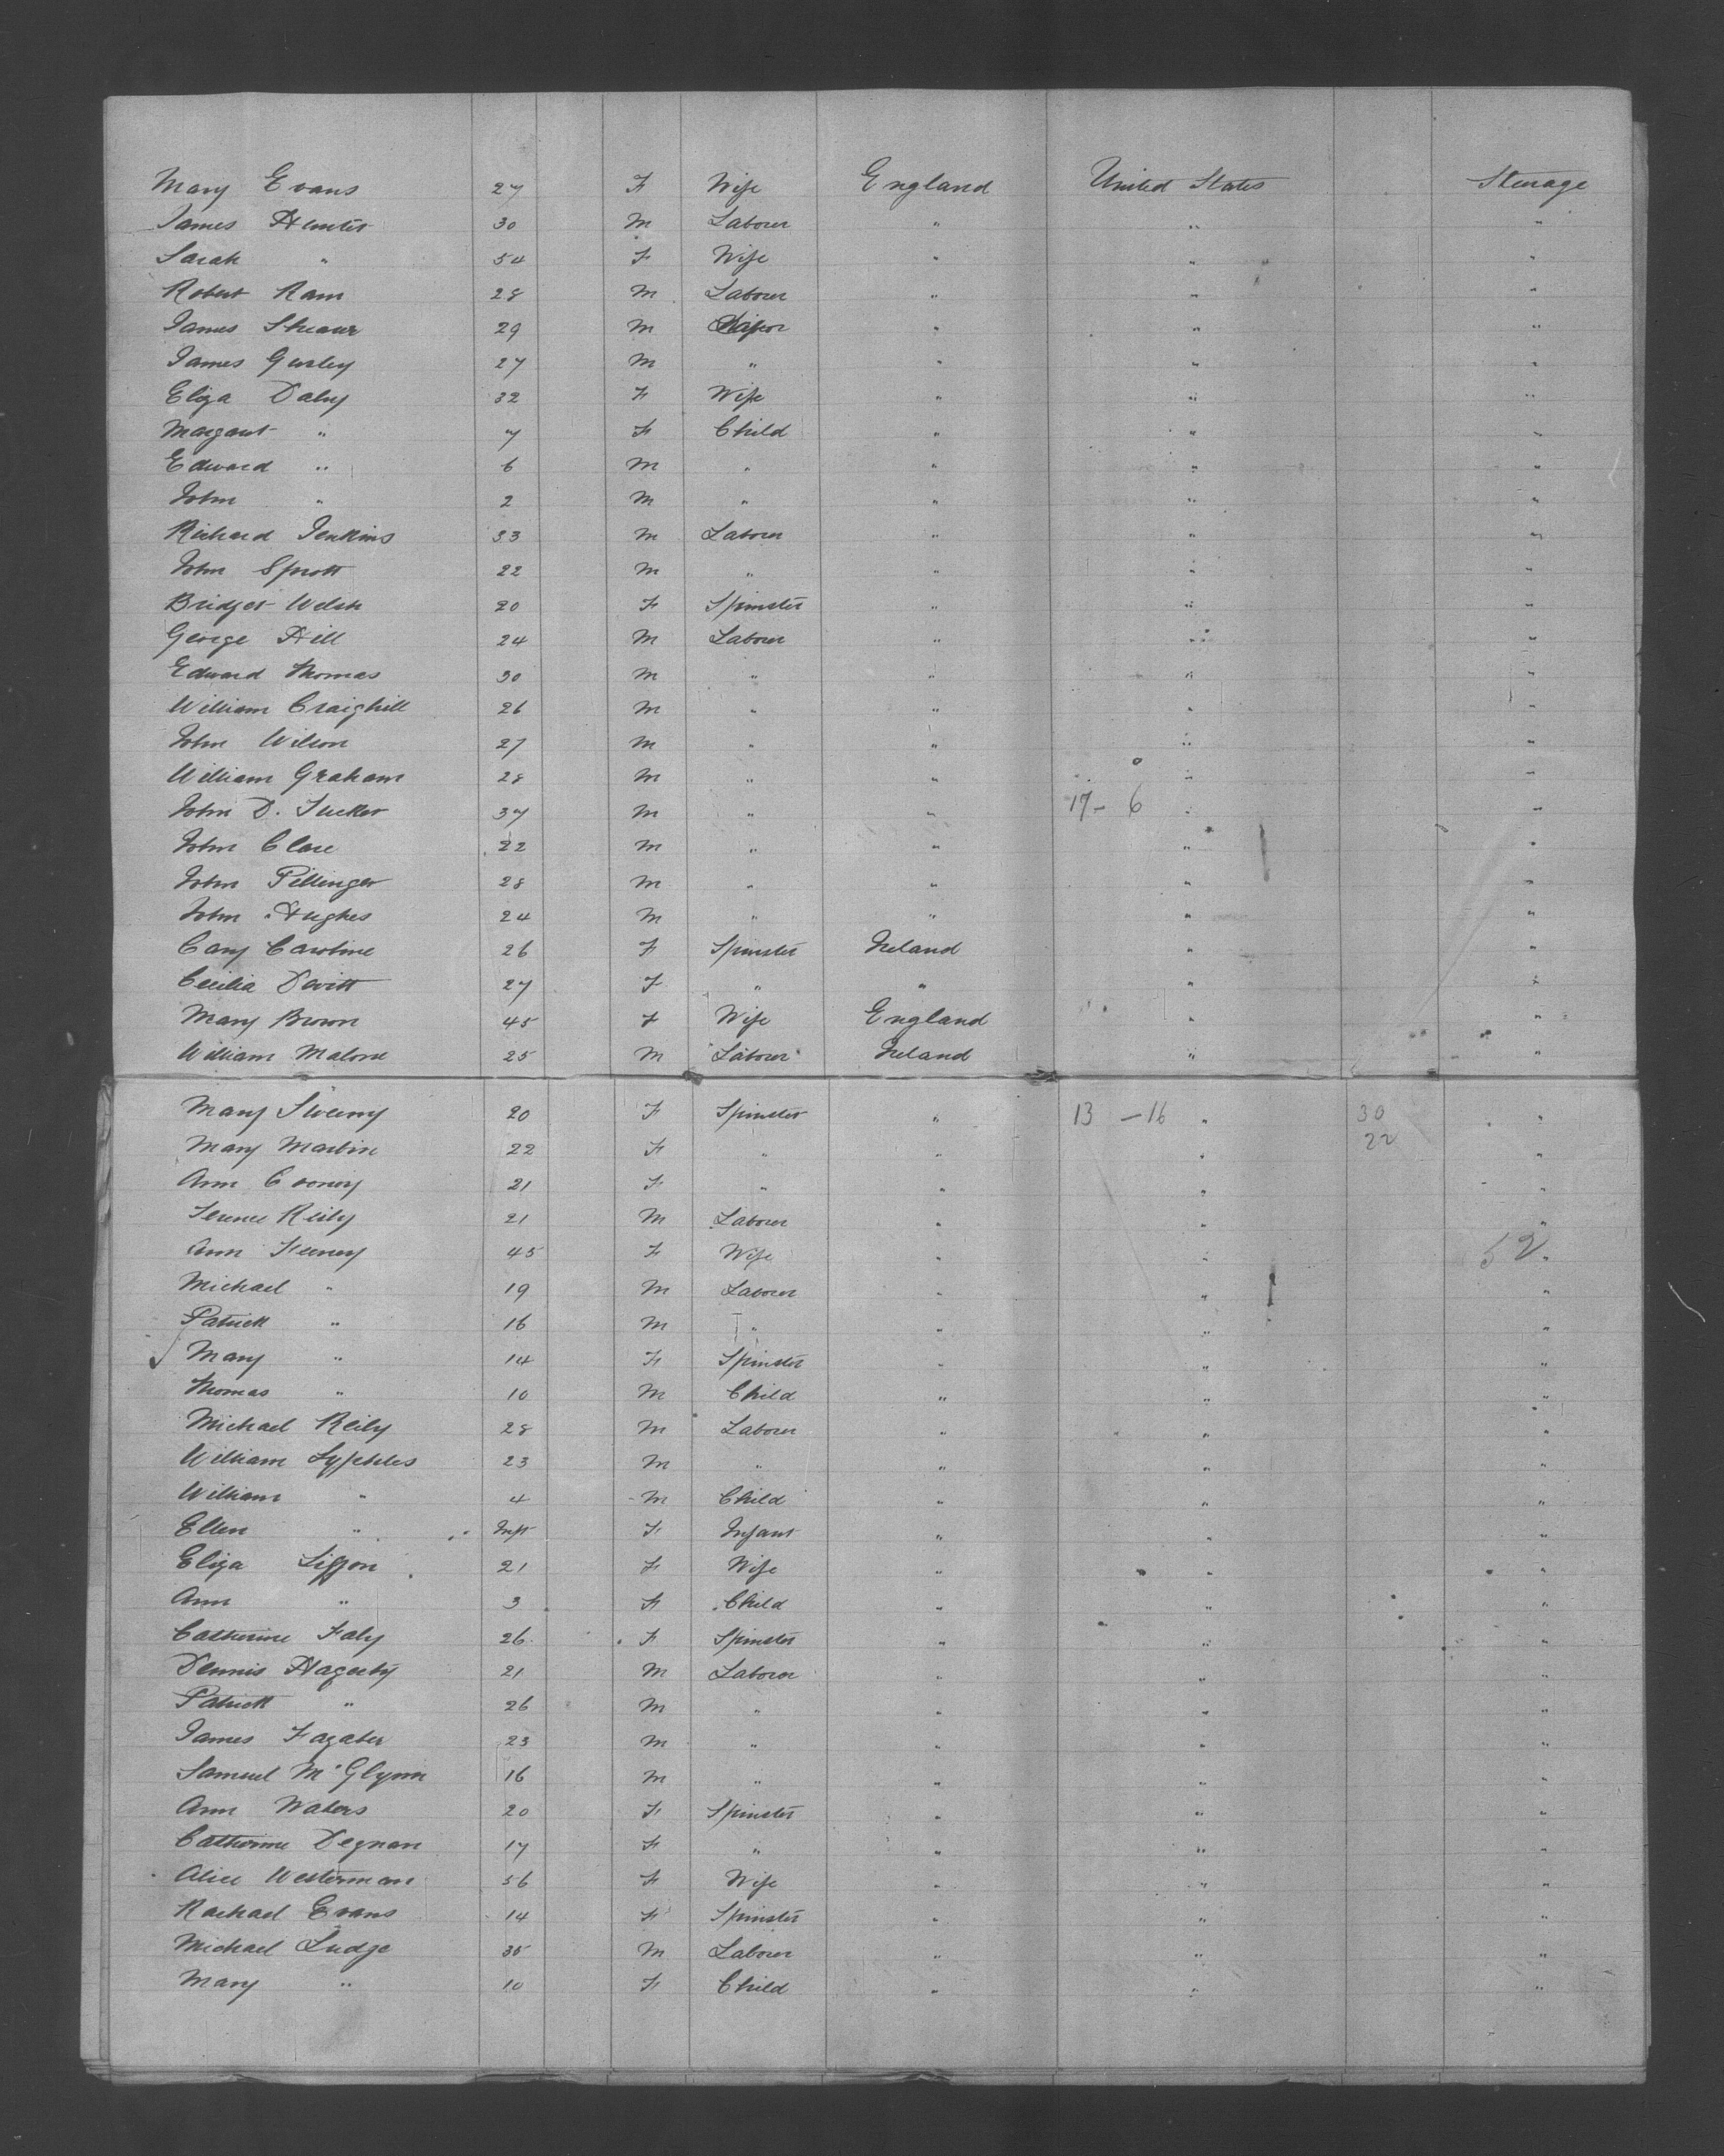 Mary Evans 27 F Wife England United States Steerage
James Hunter 30 M Laborer " " "
Sarah " 54 F Wife " " "
Robert Ram 28 M Laborer " " "
James 29 M " " "
James Gurley 27 M " " " "
Eliza Daly 32 F Wife " " "
Margaret " 7 F Child " " "
Edward " 6 M " " " "
John " 2 M " " " "
Richard Jenkins 33 M Laborer " " "
John Sprott 22 M " " " "
Bridget Welsh 20 F Spinster " " "
George Hill 24 M Laborer " " "
Edward Thomas 30 M " " " "
William Craighill 26 M " " " "
John Wilson 27 M " " " "
William Graham 28 M " " " "
John D. Tucker 37 M " " 17 - 6 " "
John Clare 22 M " " " "
John Pillinger 28 M " " " "
John Hughes 24 M " " " "
Cary Caroline 26 F Spinster Ireland " "
Cecilia Devitt 27 F " " " "
Mary Brown 45 F Wife England " "
William Malone 25 M Laborer Ireland " "
Mary Sweeny 20 F Spinster " 13 - 16 " 30 "
Mary Martin 22 F " " " 22 "
Ann Cooney 21 F " " " "
Terence Reily 21 M Laborer " " "
Ann Feeney 45 F Wife " " 52 "
Michael " 19 M Laborer " " "
Patrick " 16 M " " " "
Mary " 14 F Spinster " " "
Thomas " 10 M Child " " "
Michael Reily 28 M Laborer " " "
William 23 M " " " "
William " 4 M Child " " "
Ellen " Inft F Infant " " "
Eliza 21 F Wife " " "
Ann " 3 F Child " " "
Catherine Faly 26 F Spinster " " "
Dennis Hagerty 21 M Laborer " " "
Patrick " 26 M " " " "
James 23 M " " " "
Samuel McGlynn 16 M " " " "
Ann Waters 20 F Spinster " " "
Catherine Degnan 17 F " " " "
Alice Westerman 56 F Wife " " "
Rachael Evans 14 F Spinster " " "
Michael Judge 35 M Laborer " " "
Mary " 10 F Child " " "